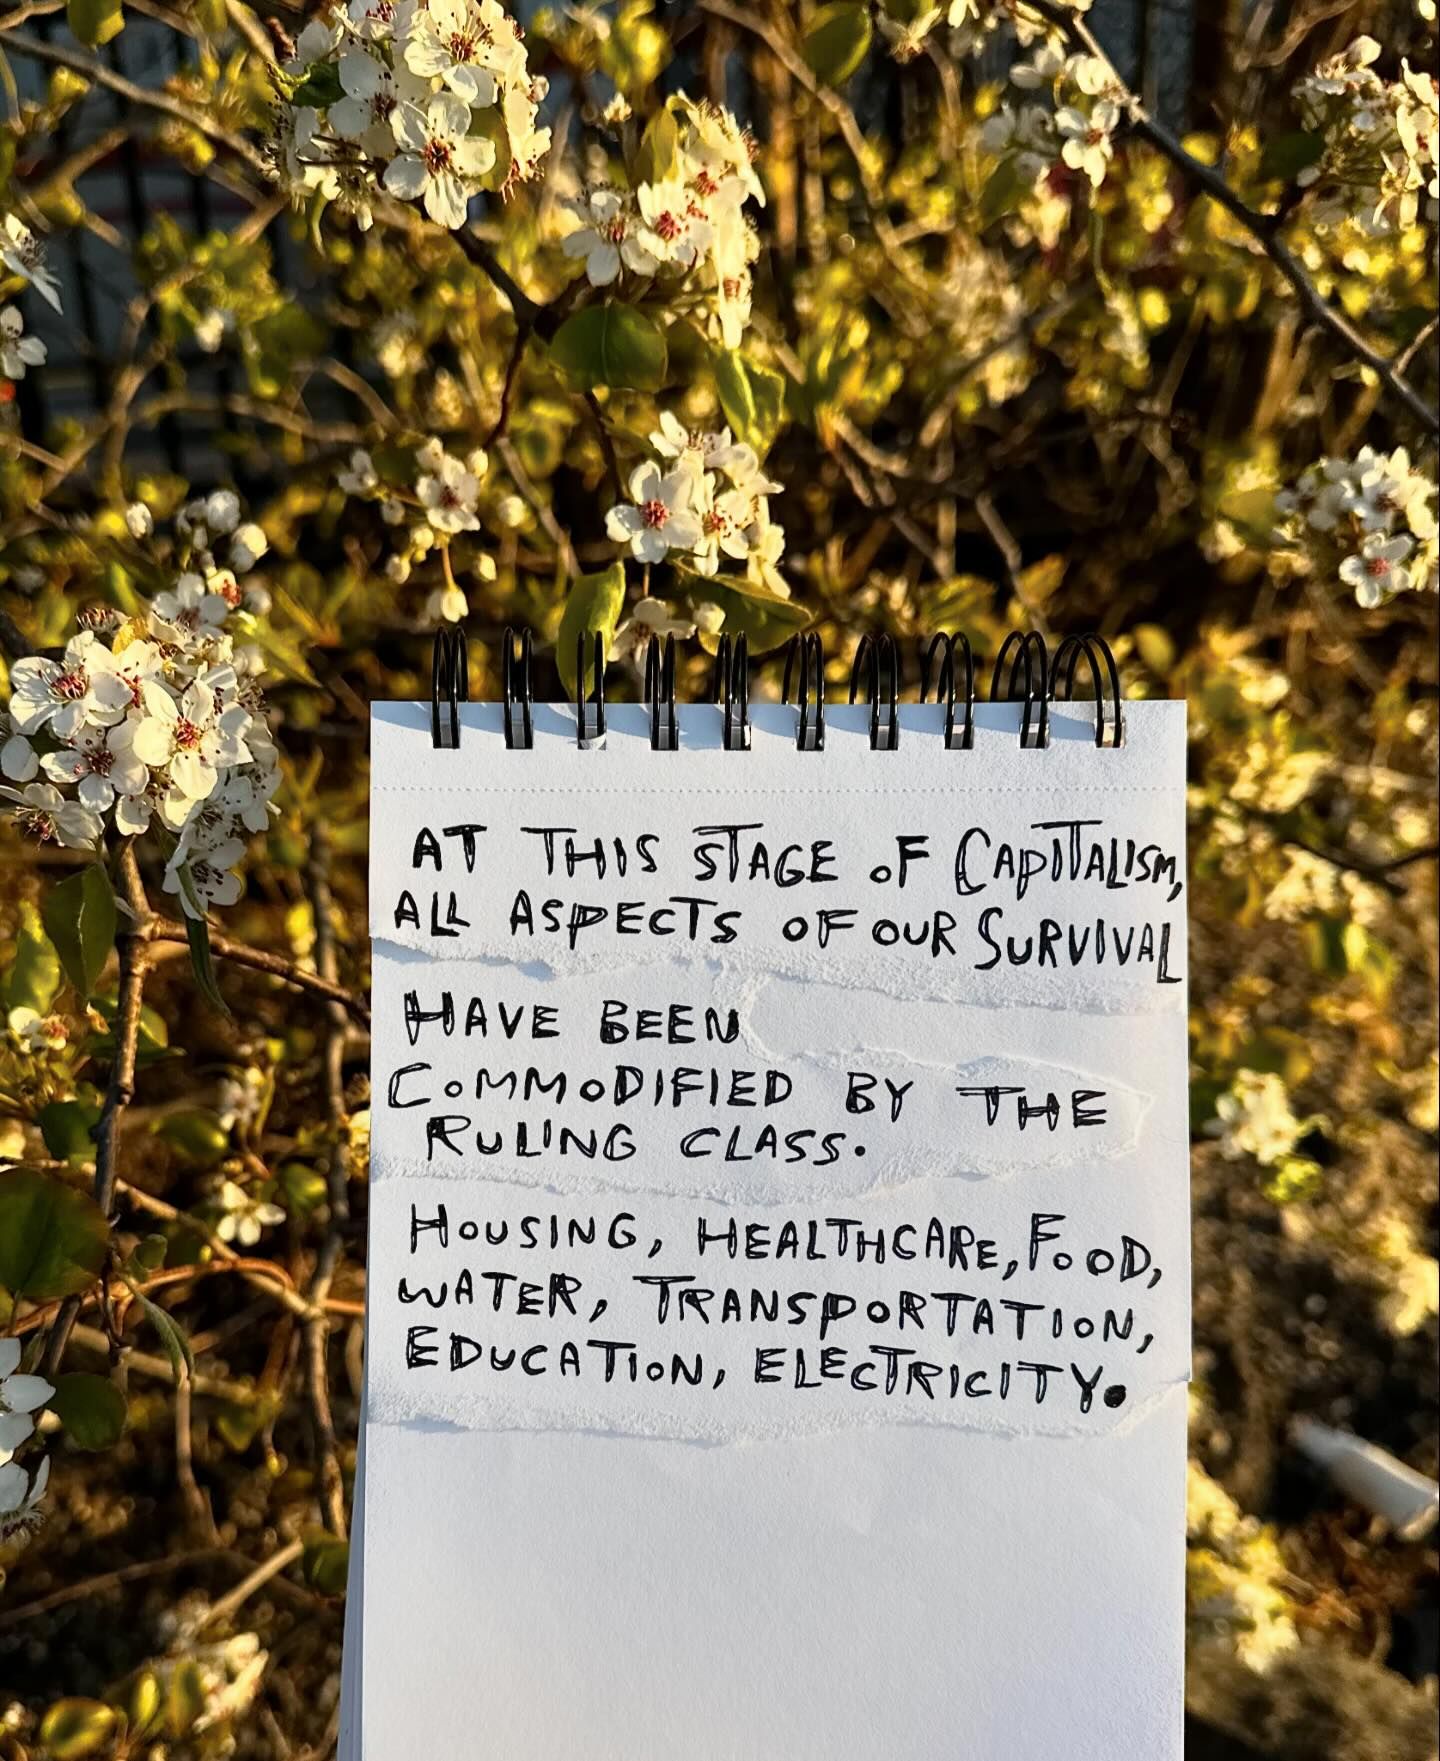 AT THIS STAGE OF CAPITALISM,
ALL ASPECTS OF OUR SURVIVAL
HAVE BEEN
COMMODIFIED BY THE
RULING CLASS.
HOUSING, HEALTHCARE, FOOD,
WATER, TRANSPORTATION,
EDUCATION, ELECTRICITY.